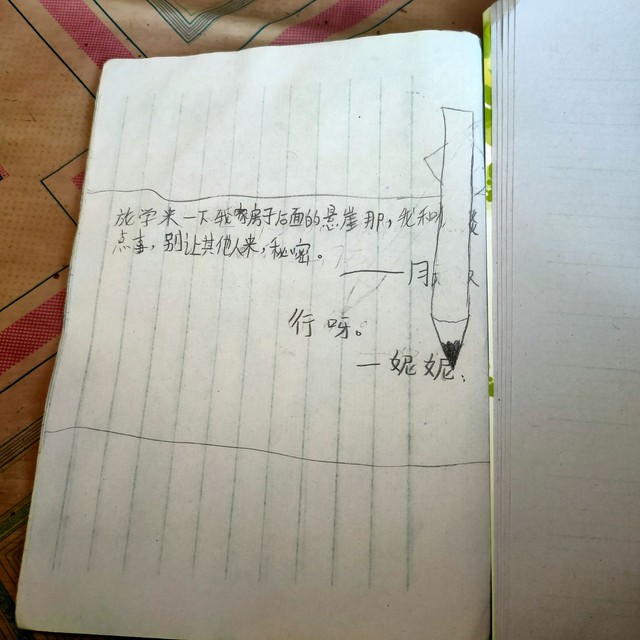 放学来一下我家房子后面的悬崖那,我和
点事,别让其他人来,秘密。
——月
行呀。
—妮妮.